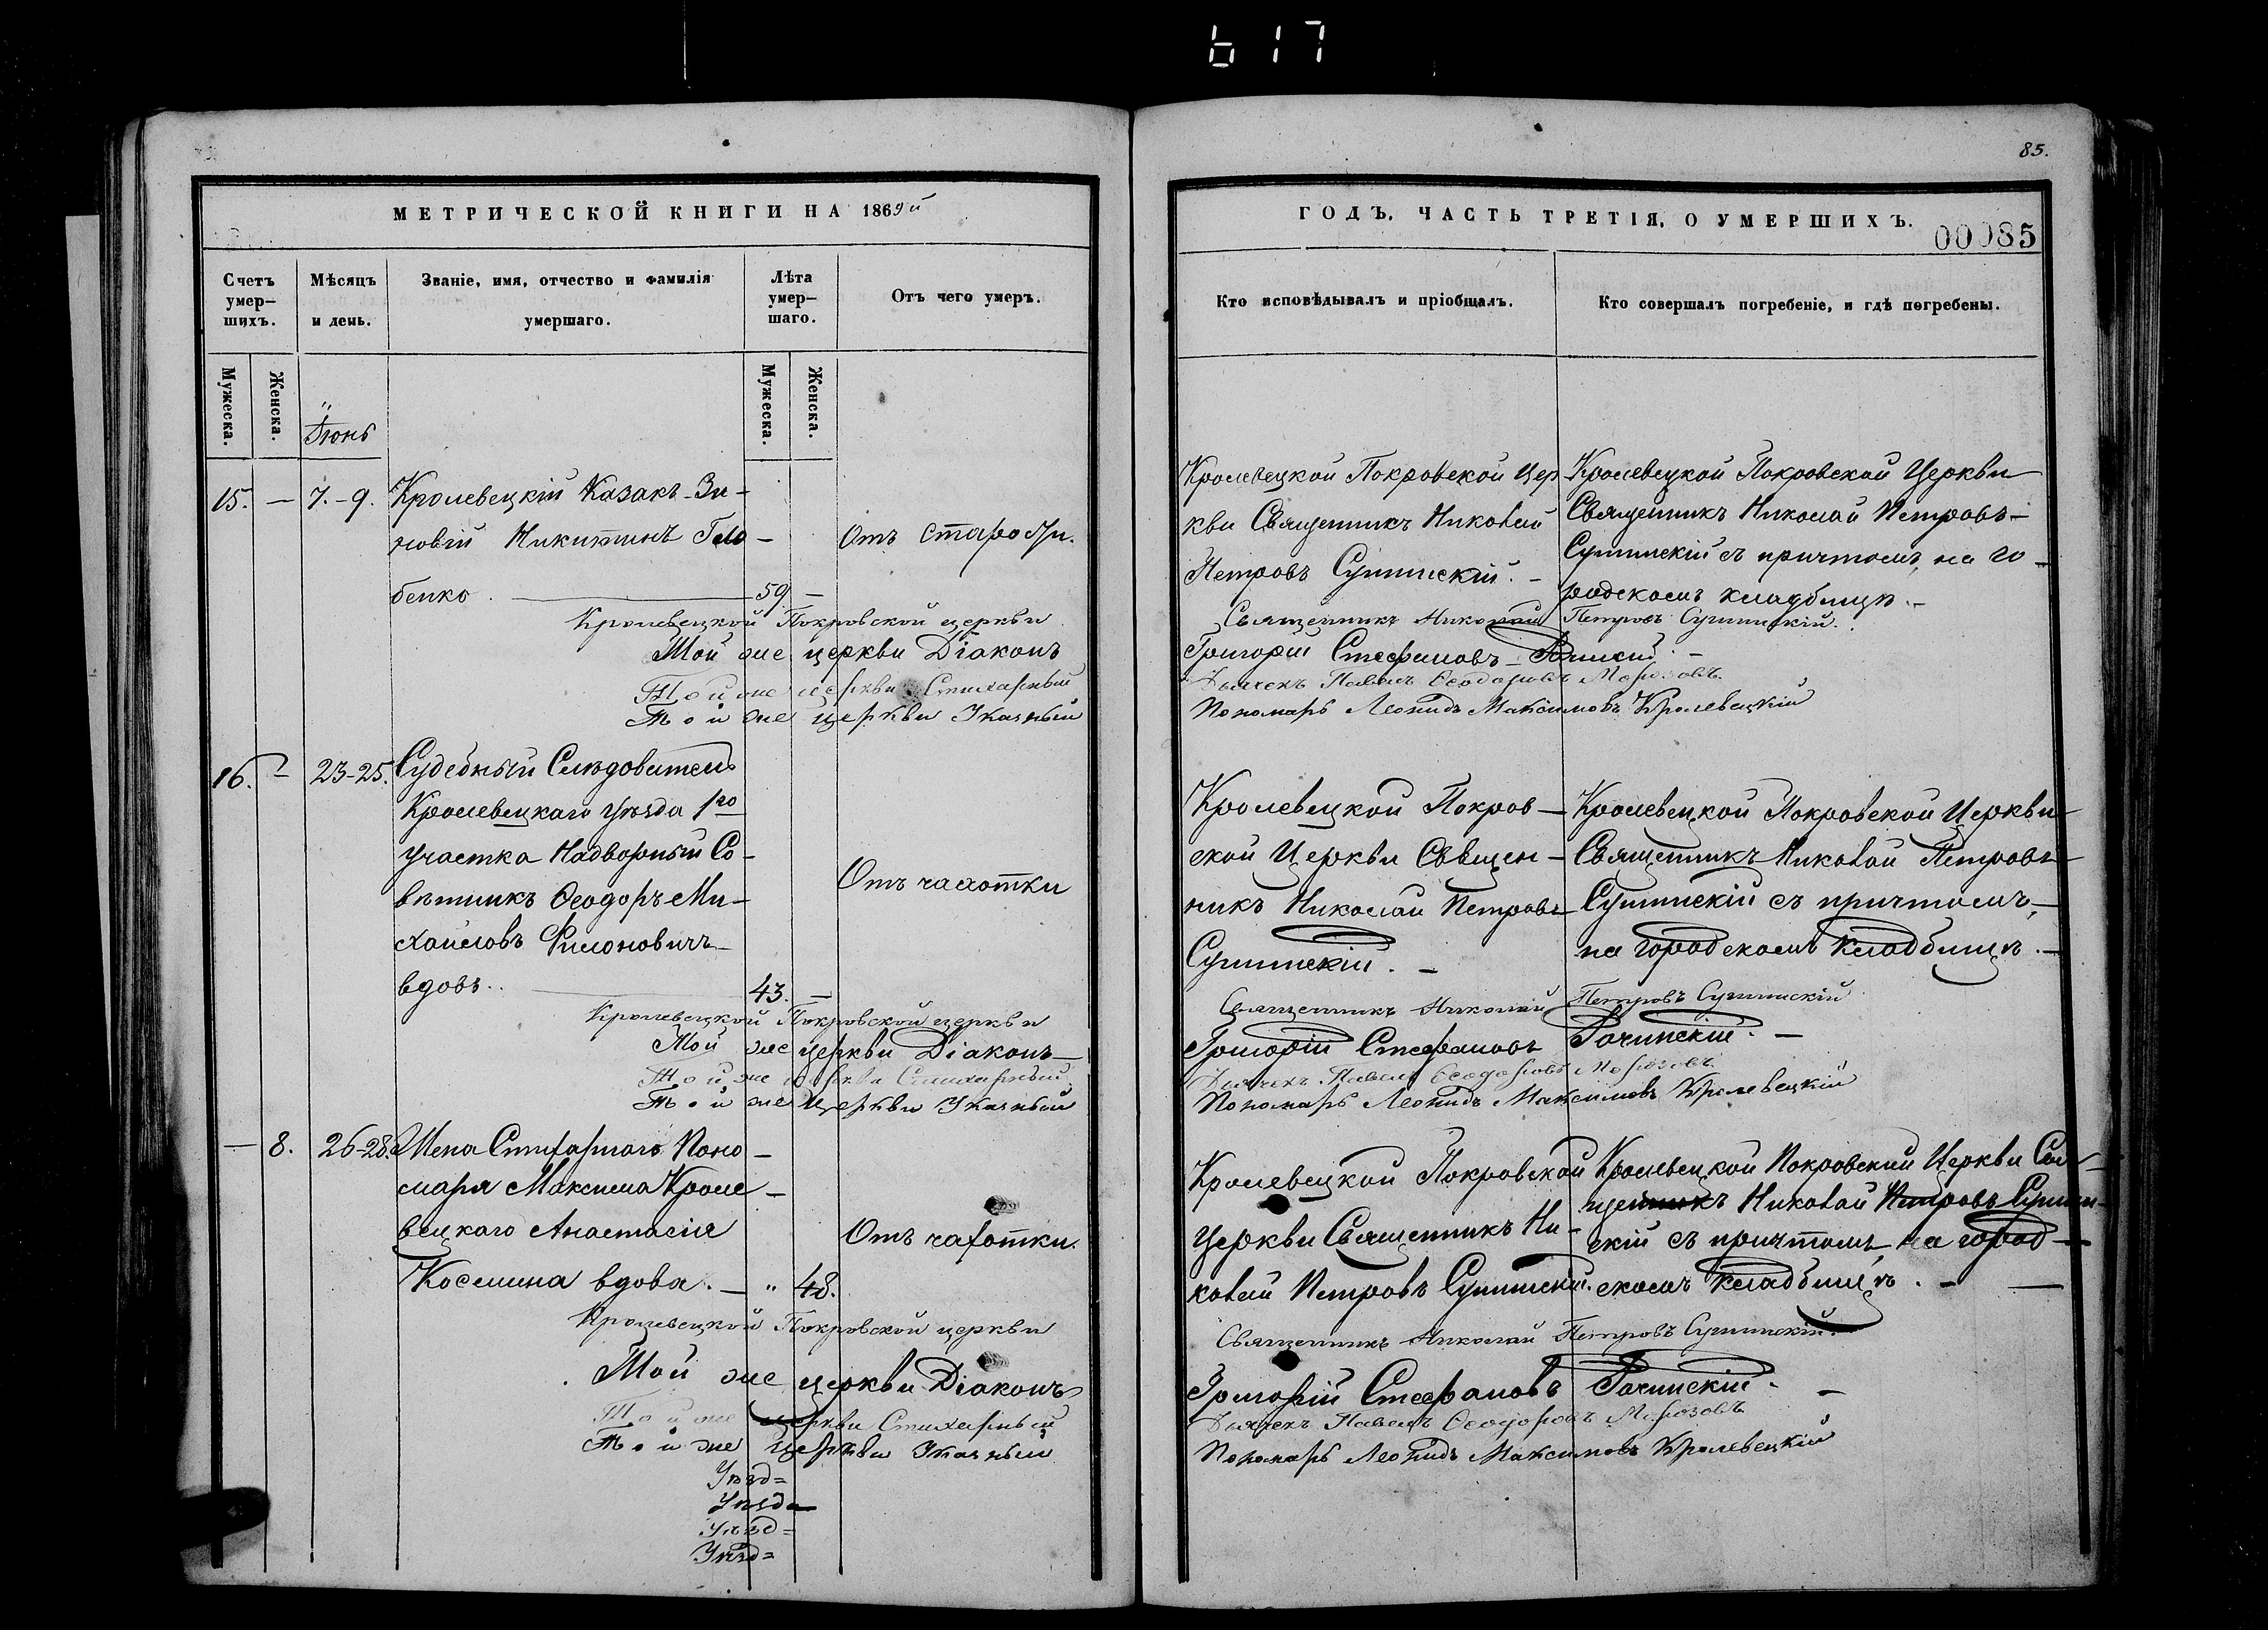 617
85.
МЕТРИЧЕСКОЙ КНИГИ НА 1869й
ГОДЪ, ЧАСТЬ ТРЕТІЯ, О УМЕРШИХЪ.
00085
Счетъ умер-
шихъ.
Мѣсяцъ
и день.
Званіе, имя, отчество и фамилія
умершаго.
Лѣта
умер-
шаго.
Отъ чего умеръ.
Кто исповѣдывалъ и пріобщалъ.
Кто совершалъ погребеніе, и гдѣ погребены.
Мужеска.
Женска.
Мужеска.
Женска.
Іюнь
15. — 7.-9.
Кролевецкій Казакъ Зи-
новій Никитинъ
бенко. 59 —
Отъ старости.
Кролевецкой Покровской Цер
кви Священникъ Николай
Петровъ Сушинскій. —
Кролевецкой Покровской Церкви
Священникъ Николай Петровъ
Сушинскій съ причтомъ, на го-
родскомъ кладбищѣ. —
Кролевецкой Покровской церкви Священникъ Николай Петровъ Сушинскій.
Той же церкви Діаконъ Григорій Стефановъ Рачинскій. —
Той же церкви Стихарный Дьячекъ Павелъ Ѳеодоровъ Морозовъ
Той же церкви Указный Пономарь Леонидъ Максимовъ Кролевецкій
16. — 23-25.
Судебный Слѣдователь
Кролевецкаго уѣзда 1го
участка Надворный Со-
вѣтникъ Ѳеодоръ Ми-
хайловъ Филоновичъ
вдовъ. 43. —
Отъ чахотки
Кролевецкой Покров-
ской Церкви Священ-
никъ Николай Петровъ
Сушинскій. —
Кролевецкой Покровской Церкви
Священникъ Николай Петровъ
Сушинскій съ причтомъ,
на городскомъ кладбищѣ. —
Кролевецкой Покровской церкви Священникъ Николай Петровъ Сушинскій
Той же церкви Діаконъ Григорій Стефановъ Рачинскій. —
Той же церкви Стихарный Дьячекъ Павелъ Ѳеодоровъ Морозовъ
Той же церкви Указный Пономарь Леонидъ Максимовъ Кролевецкій
— 8. 26-28.
Жена Стихарнаго Поно-
маря Максима Кроле-
вецкаго Анастасія
Космина вдова. — „ 48.
Отъ чахотки.
Кролевецкой Покровской
Церкви Священникъ Ни-
колай Петровъ Сушинскій.
Кролевецкой Покровской Церкви Свя-
щенникъ Николай Петровъ Сушин-
скій съ причтомъ, на город-
скомъ кладбищѣ. —
Кролевецкой Покровской церкви Священникъ Николай Петровъ Сушинскій.
Той же церкви Діаконъ Григорій Стефановъ Рачинскій. —
Той же церкви Стихарный Дьячекъ Павелъ Ѳеодоровъ Морозовъ
Той же церкви Указный Пономарь Леонидъ Максимовъ Кролевецкій
Уѣзд=
Уѣзд=
Уѣзд=
Уѣзд=